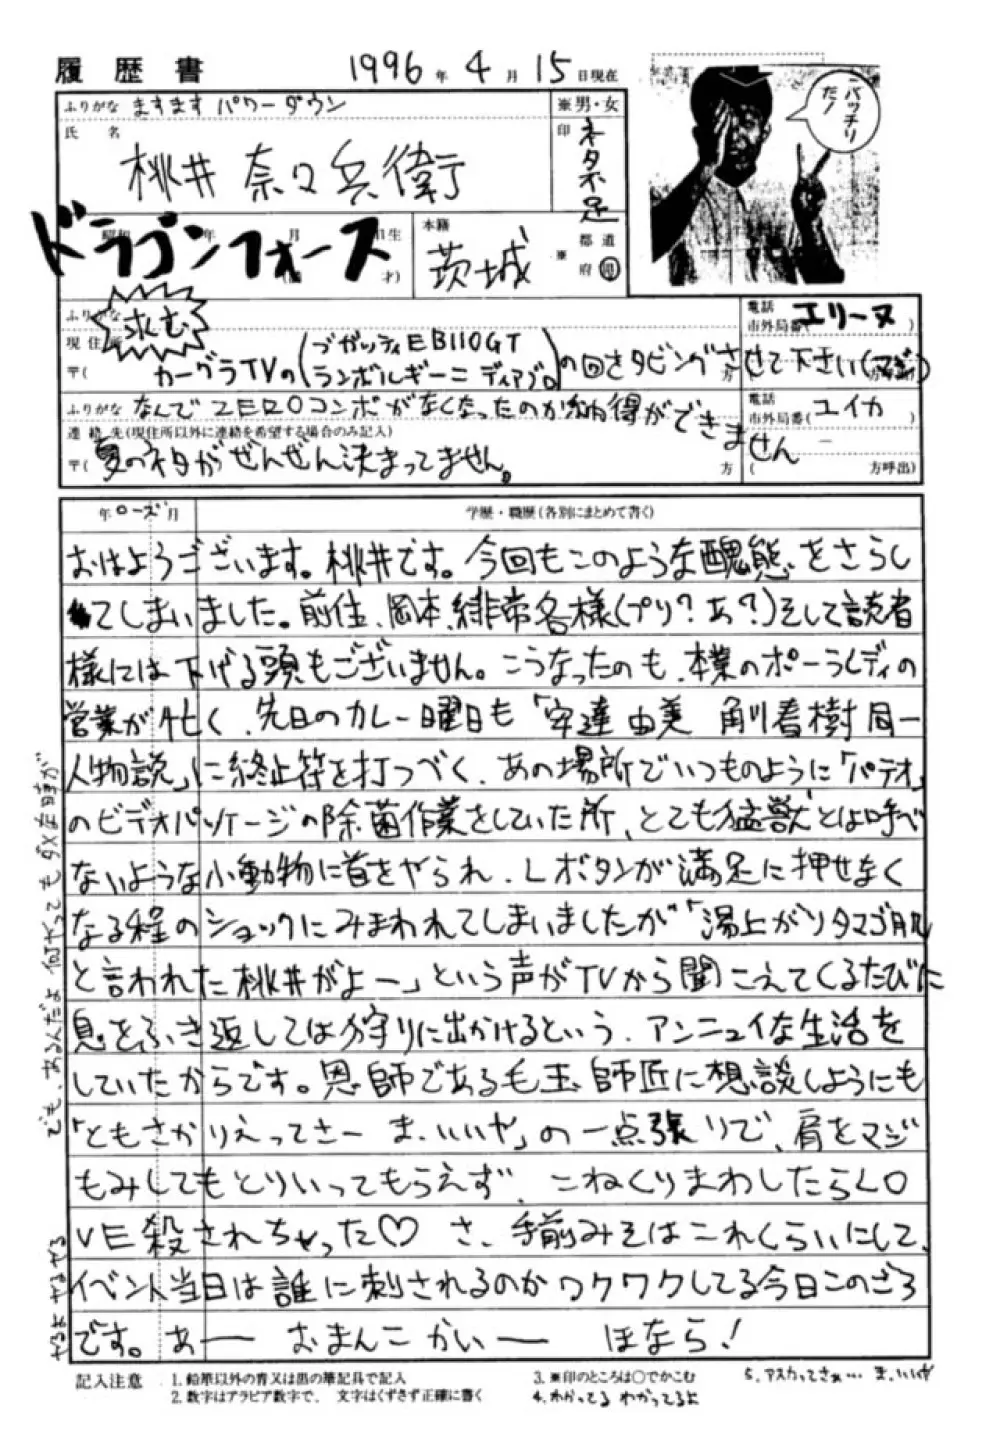 履歴書 1996年4月15日現在
ふりがな ますます パワーダウン
※男・女
氏名
桃井 奈々兵衛
印
ネタ不足
バッチリだ!
ドラゴンフォース
年 月 日生
才)
本籍
茨城
※ 都道府県
ふりがな
求む
現住所
〒(
カーグラTVの(ブガッティEB110GT ランボルギーニ ディアブロ)の回をダビングさせて下さい(マジ)
電話
市外局番( エリーヌ )
ふりがな なんでZEROコンボがなくなったのか納得ができません
連絡先(現住所以外に連絡を希望する場合のみ記入)
〒( 夏のネタがぜんぜん決まってません。
方
電話
市外局番( ユイカ )
( 方呼出)
年 ローズ 月
学歴・職歴(各別にまとめて書く)
おはようございます。桃井です。今回もこのような醜態をさらし
てしまいました。前住、岡本、緋常各様(プリ?あ?)そして読者
様には下げる頭もございません。こうなったのも、本業のポーラレディの
営業が忙しく、先日のカレー曜日も「安達由美 角川春樹同一
人物説」に終止符を打つべく、あの場所でいつものように「パテオ」
のビデオパッケージの除菌作業をしていた所、とても猛獣とは呼べ
ないような小動物に首をやられ、Lボタンが満足に押せなく
なる程のショックにみまわれてしまいましたが「湯上がりタマゴ肌
と言われた桃井がよー」という声がTVから聞こえてくるたびに
息をふき返しては狩りに出かけるという、アンニュイな生活を
していたからです。恩師である毛玉師匠に想談しようにも
「ともさかりえってさー ま、いいや」の一点張りで、肩をマジ
もみしてもとりいってもらえず、こねくりまわしたらLO
VE殺されちゃった♡ さ、手前みそはこれくらいにして、
イベント当日は誰に刺されるのかワクワクしてる今日このごろ
です。あー おまんこかいー ほなら!
でも、あるんだよ 何やってもダメな時が
やるよ やるやる
記入注意 1. 鉛筆以外の青又は黒の筆記具で記入
2. 数字はアラビア数字で、文字はくずさず正確に書く
3. ※印のところは○でかこむ
4. わかってる わかってるよ
5. アスカってさぁ… ま、いいや